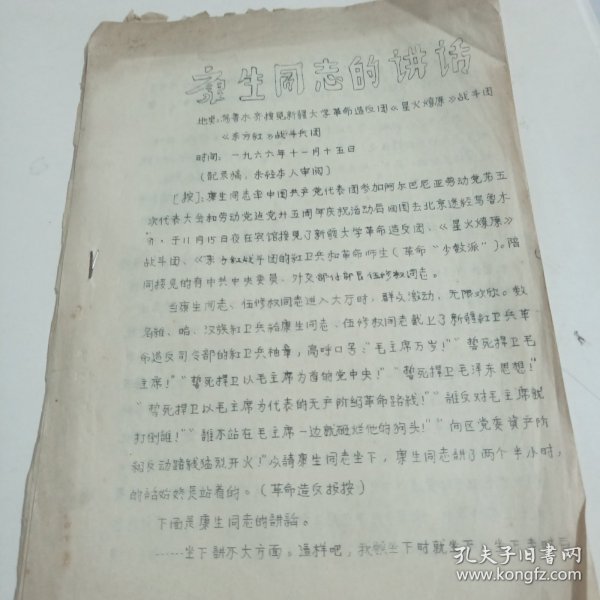 康生同志的讲话
地点:乌鲁木齐接见新疆大学革命造反团《星火燎原》战斗团
《东方红》战斗兵团
时间:一九六六年十一月十五日
(记录稿,未经本人审阅)
[按]:康生同志率中国共产党代表团参加阿尔巴尼亚劳动党第五
次代表大会和劳动党建党廿五周年庆祝活动后回国去北京途经乌鲁木
齐,于11月15日夜在宾馆接见了新疆大学革命造反团、《星火燎原》
战斗团、《东方红战斗团的红卫兵和革命师生(革命“少数派”)。陪
同接见的有中共中央委员、外交部付部长伍修权同志。
当康生同志、伍修权同志进入大厅时,群众激动,无限欢欣。数
名维、哈、汉族红卫兵给康生同志、伍修权同志戴上了新疆红卫兵革
命造反司令部的红卫兵袖章,高呼口号:“毛主席万岁!”“誓死捍卫毛
主席!”“誓死捍卫以毛主席为首的党中央!”“誓死捍卫毛泽东思想!”
“誓死捍卫以毛主席为代表的无产阶级革命路线!”“誰反对毛主席就
打倒誰!”“誰不站在毛主席一边就砸烂他的狗头!”“向区党委資产阶
级反动路线猛烈开火!众請康生同志坐下,康生同志讲了两个半小时,
的始终是站着的。(革命造反报按)
下面是康生同志的講話。
……坐下講不大方面。這样吧,我
下时就坐下,坐下
孔夫子旧书网
www.kongfz.com